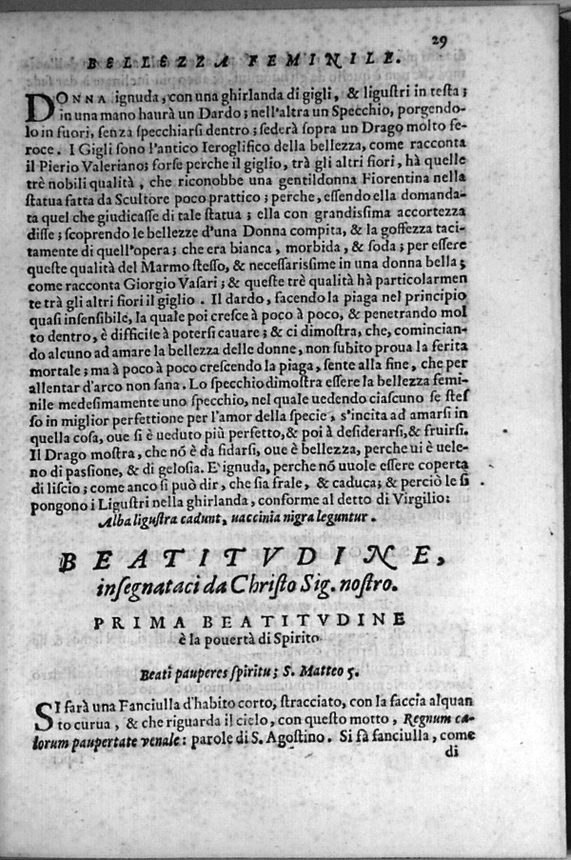 29
BELLEZZA FEMINILE.
DONNA ignuda, con una ghirlanda di gigli, & ligustri in testa;
in una mano haurà un Dardo; nell'altra un Specchio, porgendo-
lo in fuori, senza specchiarsi dentro; sederà sopra un Drago molto fe-
roce. I Gigli sono l'antico Ieroglifico della bellezza, come racconta
il Pierio Valeriano; forse perche il giglio, trà gli altri fiori, hà quelle
trè nobili qualità, che riconobbe una gentildonna Fiorentina nella
statua fatta da Scultore poco prattico; perche, essendo ella domanda-
ta quel che giudicasse di tale statua; ella con grandissima accortezza
disse; scoprendo le bellezze d'una Donna compita, & la goffezza taci-
tamente di quell'opera; che era bianca, morbida, & soda; per essere
queste qualità del Marmo stesso, & necessarissime in una donna bella;
come racconta Giorgio Vasari; & queste trè qualità hà particolarmen
te trà gli altri fiori il giglio. Il dardo, facendo la piaga nel principio
quasi insensibile, la quale poi cresce à poco à poco, & penetrando mol
to dentro, è difficile à potersi cauare; & ci dimostra, che, comincian-
do alcuno ad amare la bellezza delle donne, non subito proua la ferita
mortale; ma à poco à poco crescendo la piaga, sente alla fine, che per
allentar d'arco non sana. Lo specchio dimostra essere la bellezza femi-
nile medesimamente uno specchio, nel quale uedendo ciascuno se stes
so in miglior perfettione per l'amor della specie, s'incita ad amarsi in
quella cosa, oue si è ueduto più perfetto, & poi à desiderarsi, & fruirsi.
Il Drago mostra, che nõ è da fidarsi, oue è bellezza, perche ui è uele-
no di passione, & di gelosia. E' ignuda, perche nõ uuole essere coperta
di liscio; come anco si può dir, che sia frale, & caduca; & perciò le si
pongono i Ligustri nella ghirlanda, conforme al detto di Virgilio:
Alba ligustra cadunt, uaccinia nigra leguntur.
BEATITVDINE,
insegnataci da Christo Sig. nostro.
PRIMA BEATITVDINE
è la pouertà di Spirito
Beati pauperes spiritu; S. Matteo 5.
SI farà una Fanciulla d'habito corto, stracciato, con la faccia alquan
to curua, & che riguarda il cielo, con questo motto, Regnum cæ-
lorum paupertate venale: parole di S. Agostino. Si fà fanciulla, come
di